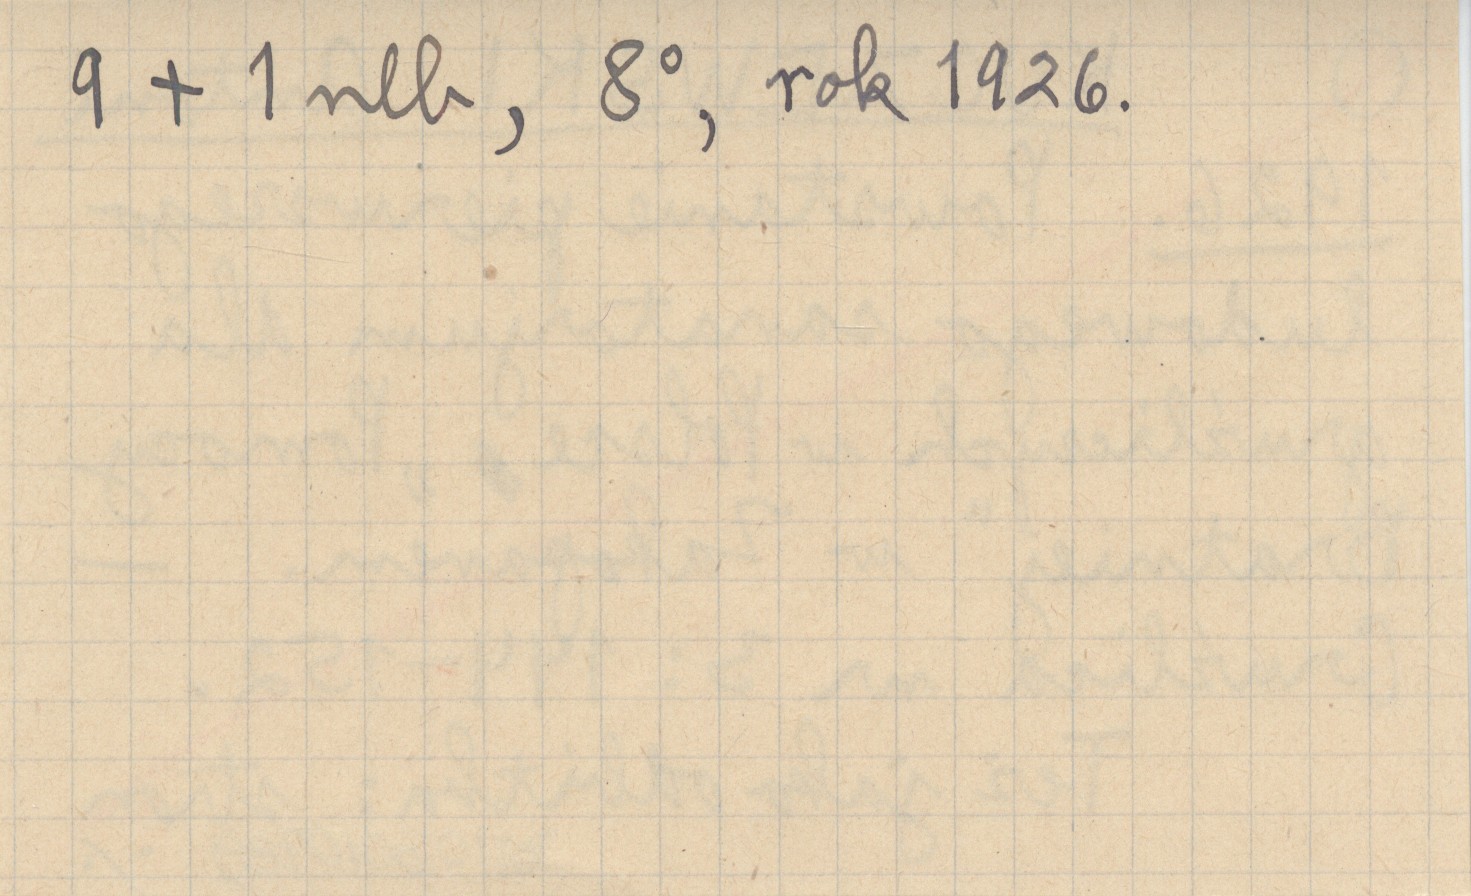 9 + 1 nlb, 8°, rok 1926.